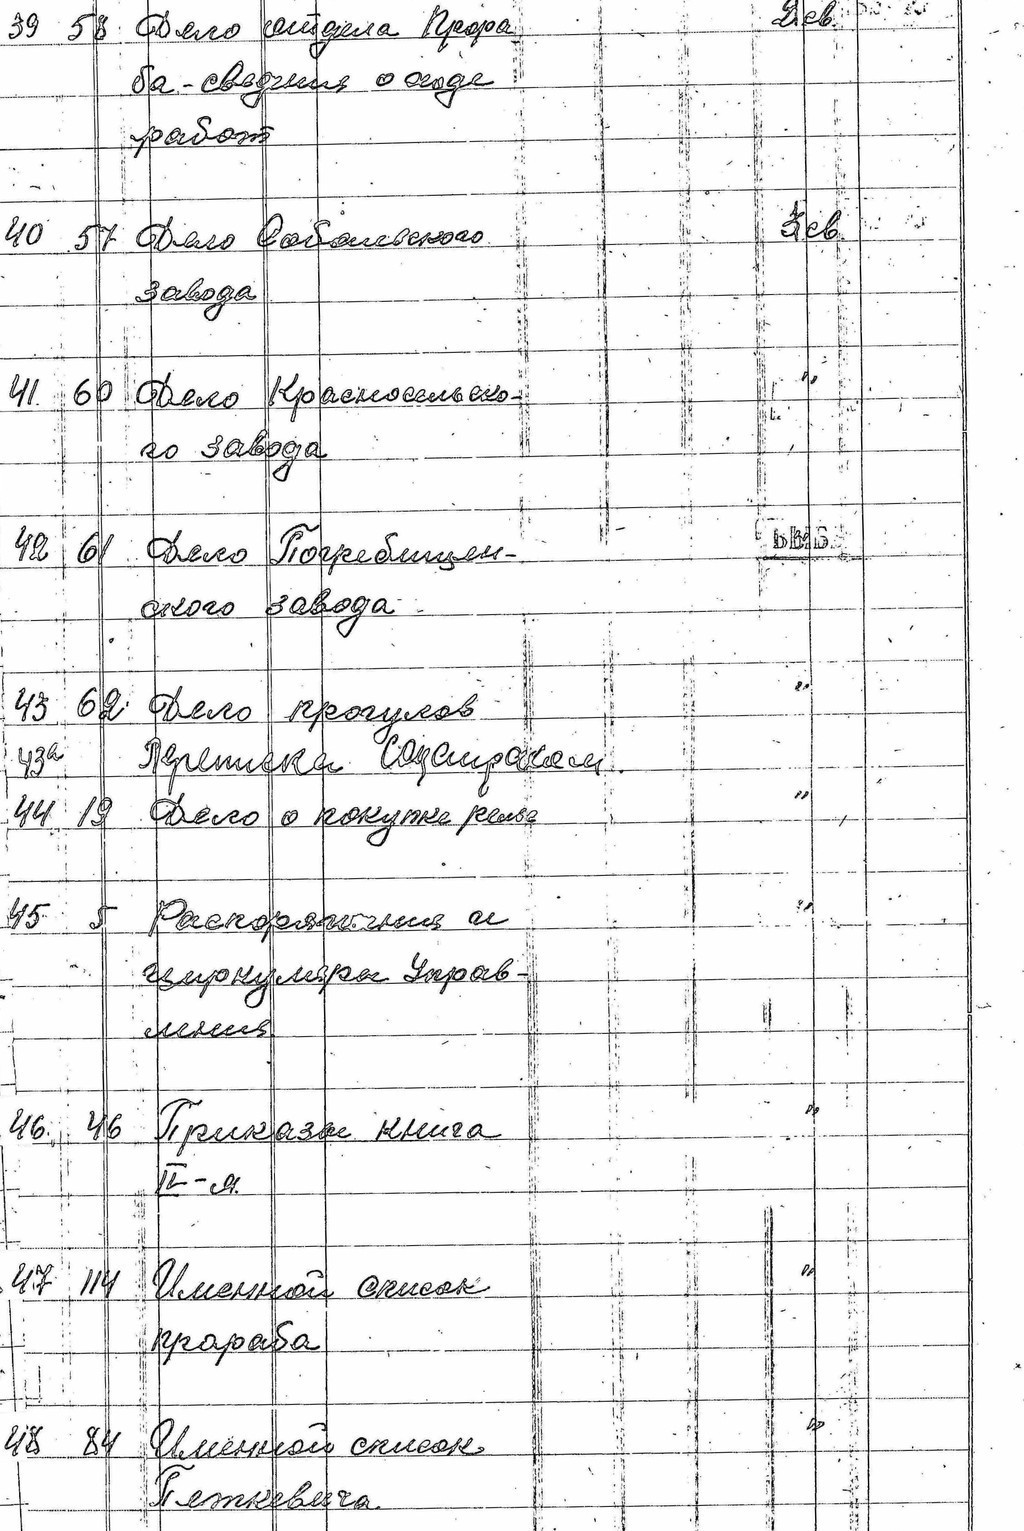 39 58 Дело отдела Прора 2 св.
ба - сведения о ходе
работ
40 57 Дело Соболевского 3 св.
завода
41. 60 Дело Красносельско- "
го завода
42 61 Дело Погребищен-
ского завода
43 62 Дело прогулов "
43а Переписка
44 19 Дело о покупке "
45 5 Распоряжения и "
циркуляры Управ-
ления
46. 46 Приказы книга "
II-я.
47 114 Именной список "
прораба
48 84 Именной список "
Петкевича.